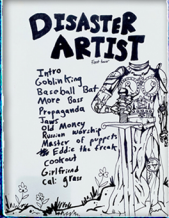 DISASTER
ARTIST
Intro
Goblin King
Baseball Bat
More Bass
Propaganda
Jaws
Old Money
Russian Worship
Master of puppets
Eddie the freak
cookout
Girlfriend
cal: grass